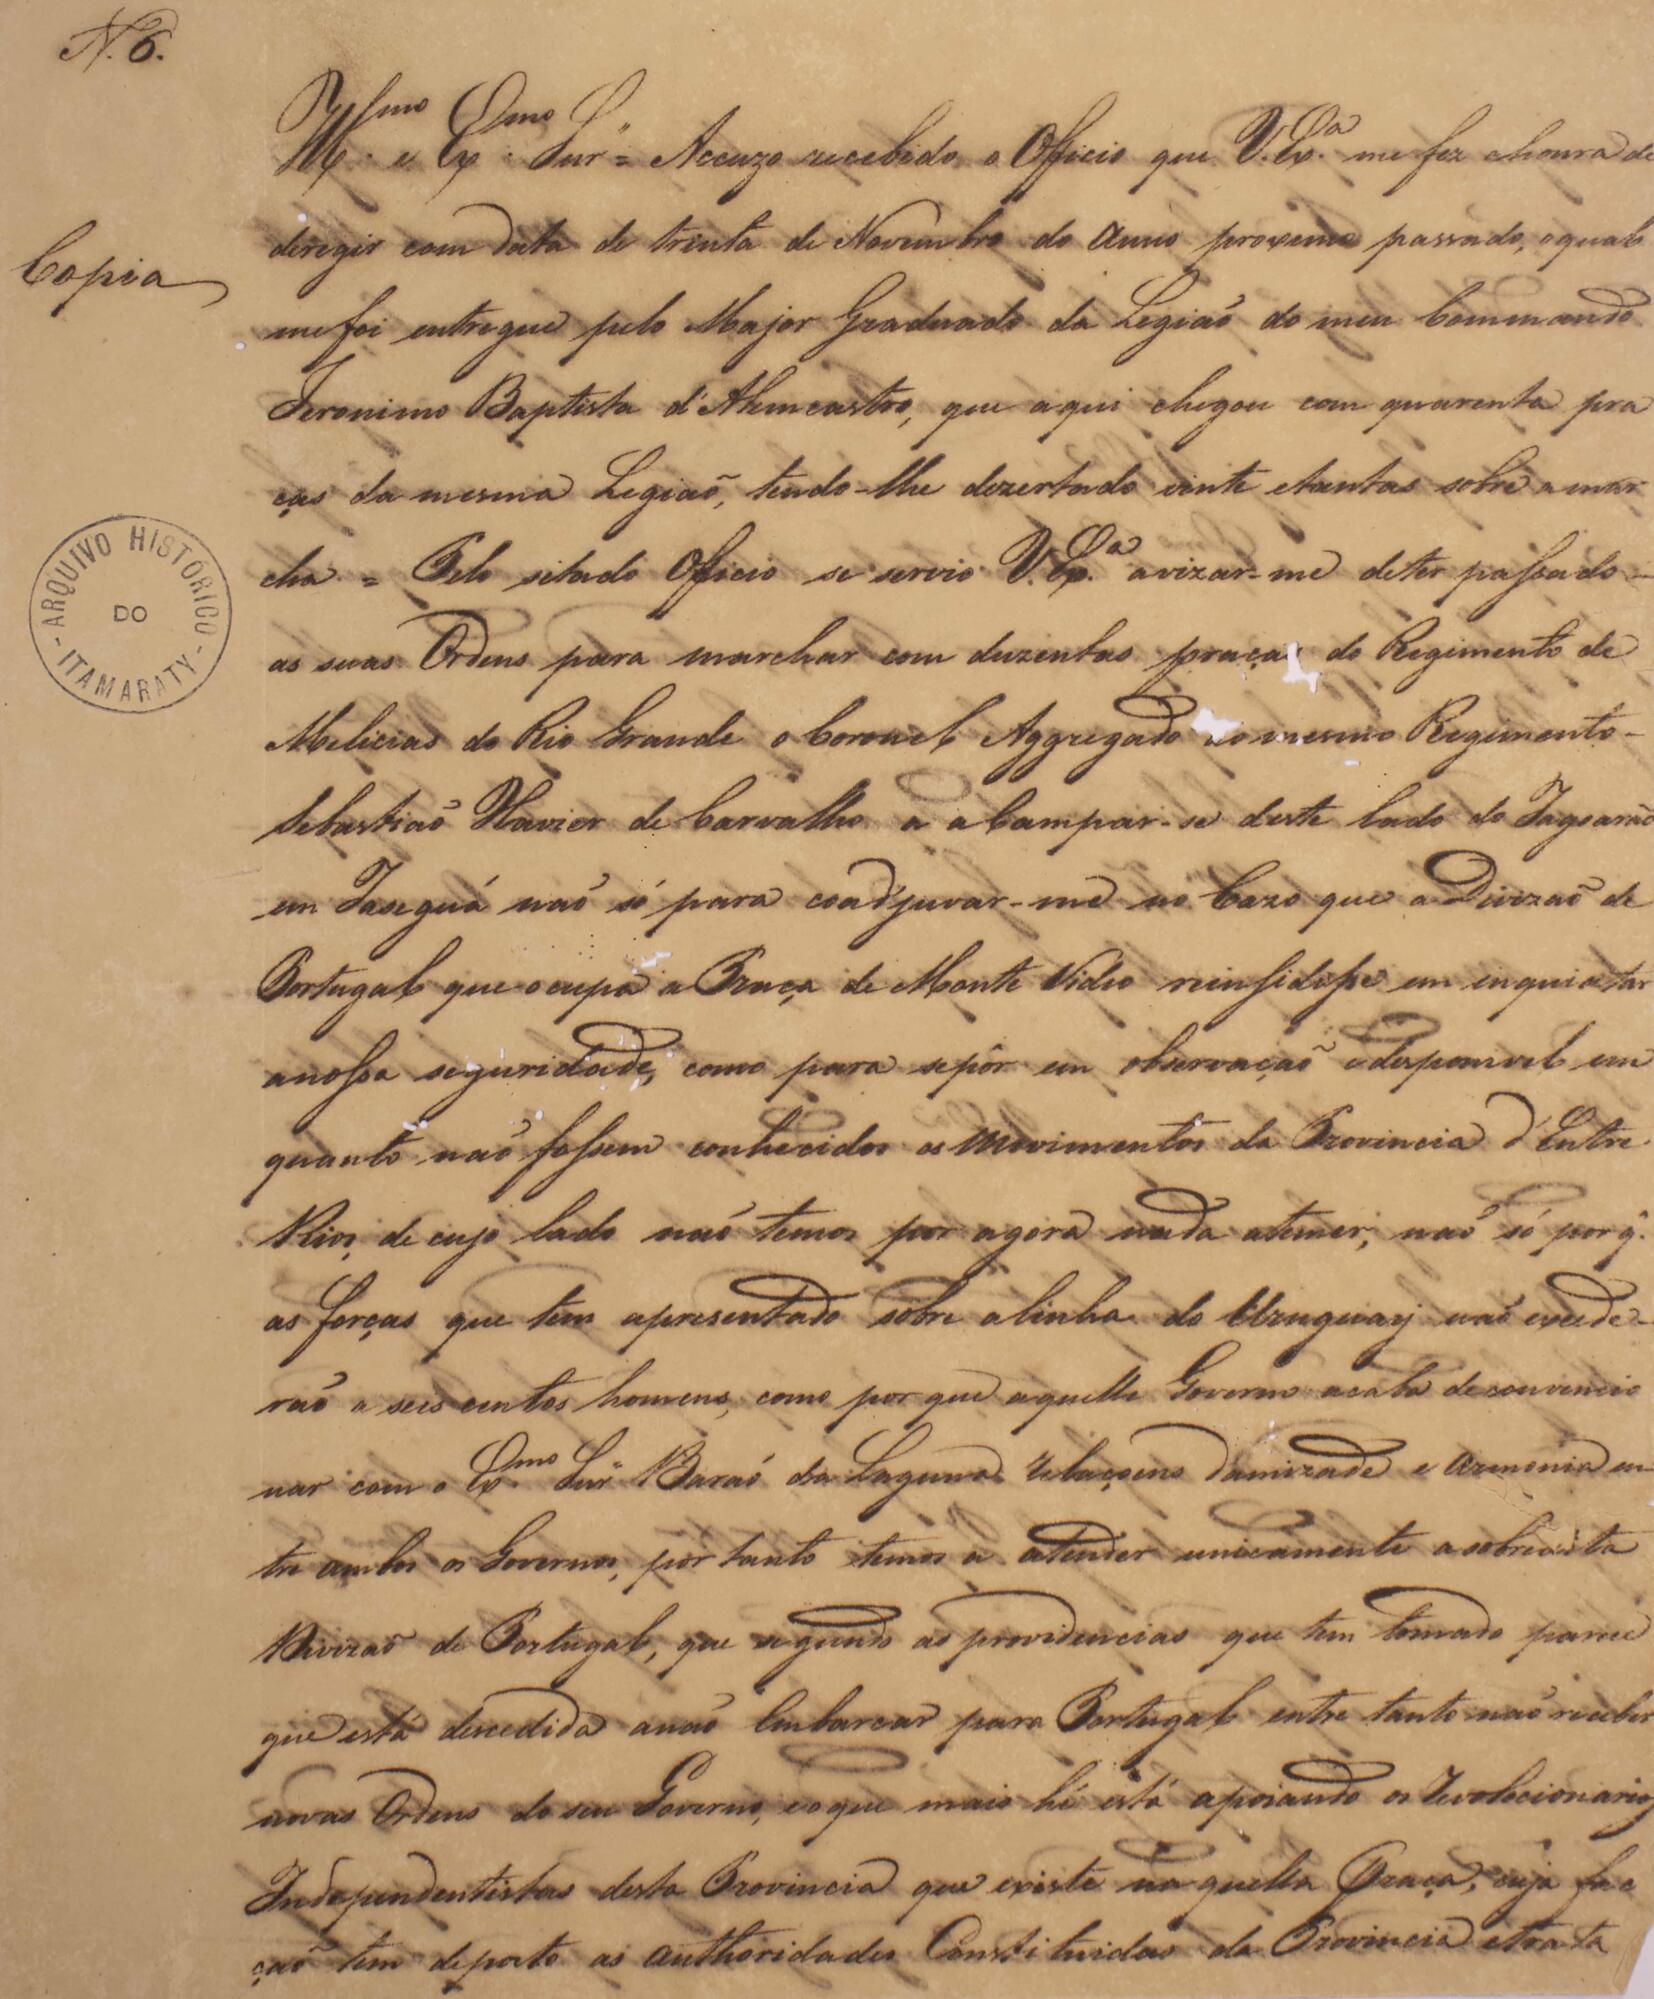 N. 6.
Ill.mo e Ex.mo Snr = Accuzo recebido o Officio que V. Ex.a me fez a honra de
deregir com data de trinta de Novembro do Anno proxemo passado, o qual
Copia
me foi entregue pelo Major Graduado da Legiaõ do meu Commando
Jeronimo Baptista d'Alencastro, que aqui chegou com quarenta pra
ças da mesma Legiaõ, tendo-lhe dezertado vinte etantas sobre a mar
cha = Pelo sitado Officio se servio V. Ex.a avizar-me deter passado
as suas Ordens para marchar com duzentas praças do Regimento de
Melicias do Rio Grande o Coronel Aggregado ao mesmo Regimento
Sebastiaõ Xavier de Carvalho a aCampar-se deste lado do Jagoaraõ
em Taseguá naõ só para coadjuvar-me no Cazo que a Divizaõ de
Portugal que ocupa a Praça de Monte Vidio reinsidisse em inquietar
anossa seguridade, como para sepôr em observaçaõ edesponivel em
quanto naõ fossem conhecidos os Movimentos da Provincia d'Entre
Rios, de cujo lado naõ temos por agora nada atemer; naõ só por q.
as forças que tem apresentado sobre alinha do Uruguay naõ exede-
raõ a seis centos homens, como por que aquelle Governo acaba deconvencio
nar com o Ex.mo Snr Baraõ da Laguna relaçoens damizade e Armonia en
tre ambos os Governos, por tanto temos a atender unicamente a sobredita
Divizaõ de Portugal, que segundo as providencias que tem tomado parece
que está descedida anaõ Embarcar para Portugal entre tanto naõ receber
novas Ordens do seu Governo, eoque mais hé está apoiando os Revolocionarios
Independentistas desta Provincia que existe na quella Praça, cuja fac
çaõ tem deposto as authoridades Constituidas da Provincia etrata
ARQUIVO HISTÓRICO
DO
- ITAMARATY -